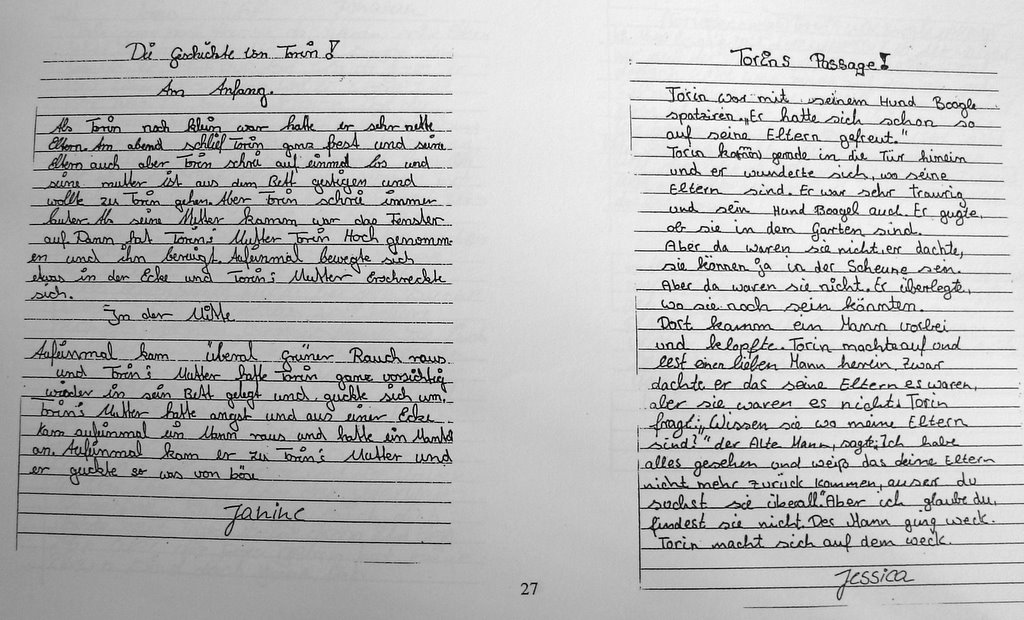 Die Geschichte von Torin!
Am Anfang.
Als Torin noch klein war hatte er sehr nette
Eltern. Am abend schlief Torin ganz fest und seine
Eltern auch aber Torin schrie auf einmal los und
seine mutter ist aus dem Bett gestigen und
wollte zu Torin gehen. Aber Torin schrie immer
lauter. Als seine Mutter kamm war das Fenster
auf. Dann hat Torin's Mutter Torin Hoch genomm-
en und ihn beruigt. Aufeinmal bewegte sich
etwas in der Ecke und Torin's Mutter Erschreckte
sich.
In der Mitte
Aufeinmal kam überal grüner Rauch raus
und Torin's Mutter hatte Torin ganz vorsichtig
wieder in sein Bett gelegt und guckte sich um.
Torin's Mutter hatte angst und aus einer Ecke
kam aufeinmal ein Mann raus und hatte ein Mantel
an. Aufeinmal kam er zu Torin's Mutter und
er guckte so was von böse
Janine
27
Torins Passage!
Torin war mit seinem Hund Boogle
spatziren. „Er hatte sich schon so
auf seine Eltern gefreut."
Torin gerade in die Tür hinein
und er wunderte sich, wo seine
Eltern sind. Er war sehr traurig
und sein Hund Boogel auch. Er gugte,
ob sie in dem Garten sind.
Aber da waren sie nicht, er dachte,
sie können ja in der Scheune sein.
Aber da waren sie nicht. Er überlegte,
wo sie noch sein könnten.
Dort kamm ein Mann vorbei
und klopfte. Torin machte auf und
lest einen lieben Mann herrin, zwar
dachte er das seine Eltern es waren,
aber sie waren es nicht. Torin
fragt: „Wissen sie wo meine Eltern
sind?" der Alte Mann, sagte: Ich habe
alles gesehen und weiß das deine Eltern
nicht mehr zurück kommen, auser du
suchst sie überall." Aber ich glaube du,
findest sie nicht. Der Mann ging weck.
Torin macht sich auf dem weck.
Jessica